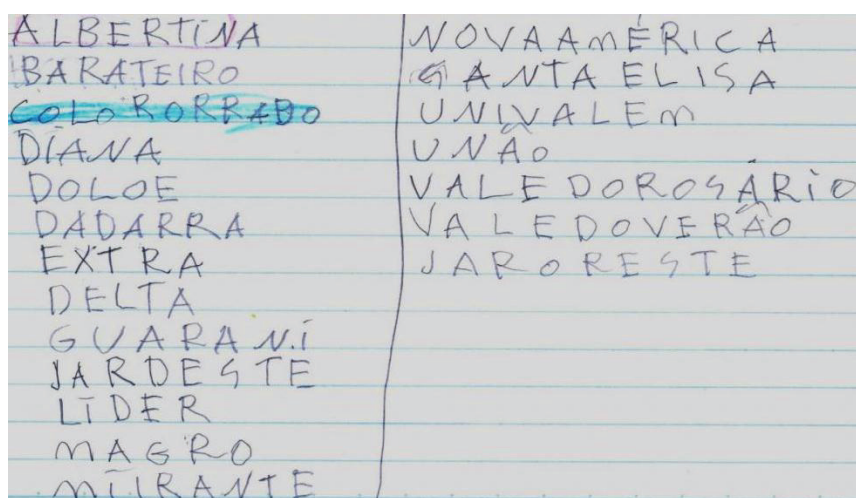 ALBERTINA
BARATEIRO
COLORORRADO
DIANA
DOLOE
DADARRA
EXTRA
DELTA
GUARANI
JARDESTE
LÍDER
MAGRO
MIIRANTE
NOVAAMÉRICA
SANTA ELISA
UNIVALEM
UNÃO
VALE DOROSÁRIO
VALEDOVERÃO
JARORESTE